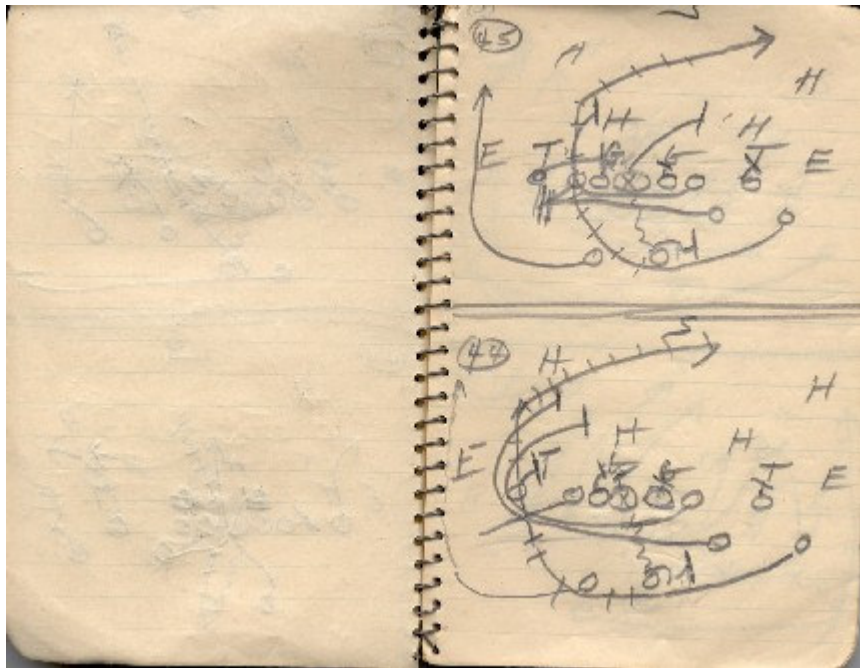 45
S
H
H
H H
E T G G T E
44
S
H
H
H
H
E T G G T E